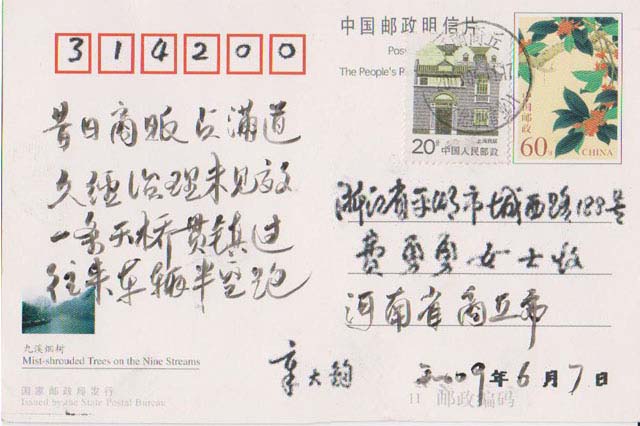 314200
中国邮政明信片
Pos
The People's P
商丘
20分
上海民居
中国人民邮政
中国邮政
60分
CHINA
昔日商贩占满道
久经治理未见效
一条天桥贯镇过
往来车辆半空跑
浙江省平湖市城西路188号
费勇勇女士收
河南省商丘市
章大钧
2009年6月7日
九溪烟树
Mist-shrouded Trees on the Nine Streams
国家邮政局发行
Issued by the State Postal Bureau
11 邮政编码